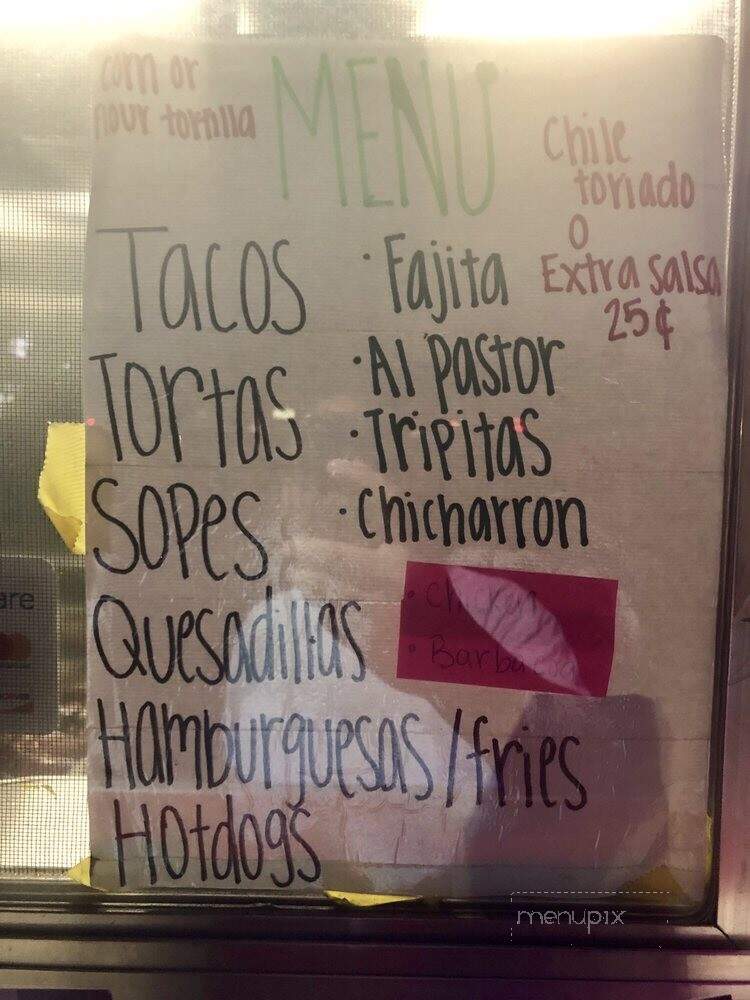 corn or
flour tortilla
MENU
Chile
toriado
o
Extra salsa
25¢
Tacos
Tortas
Sopes
Quesadillas
Hamburguesas/fries
Hotdogs
· Fajita
· Al pastor
· Tripitas
· Chicharron
· Chicken
· Barbacoa
are
menupix